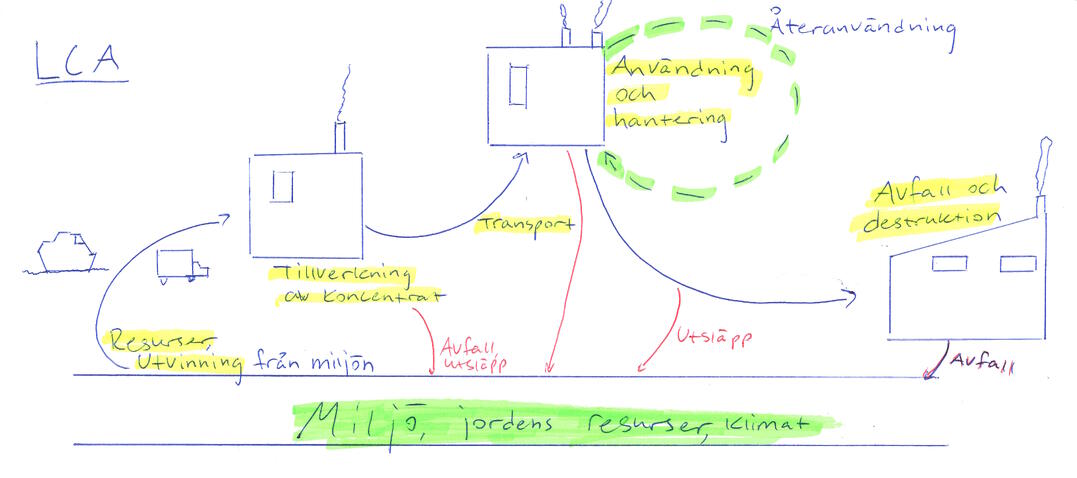 LCA
Återanvändning
Användning
och
hantering
Avfall och
destruktion
Transport
Tillverkning
av koncentrat
Resurser,
Utvinning från miljön
Avfall,
utsläpp
Utsläpp
Avfall
Miljö, jordens resurser, klimat